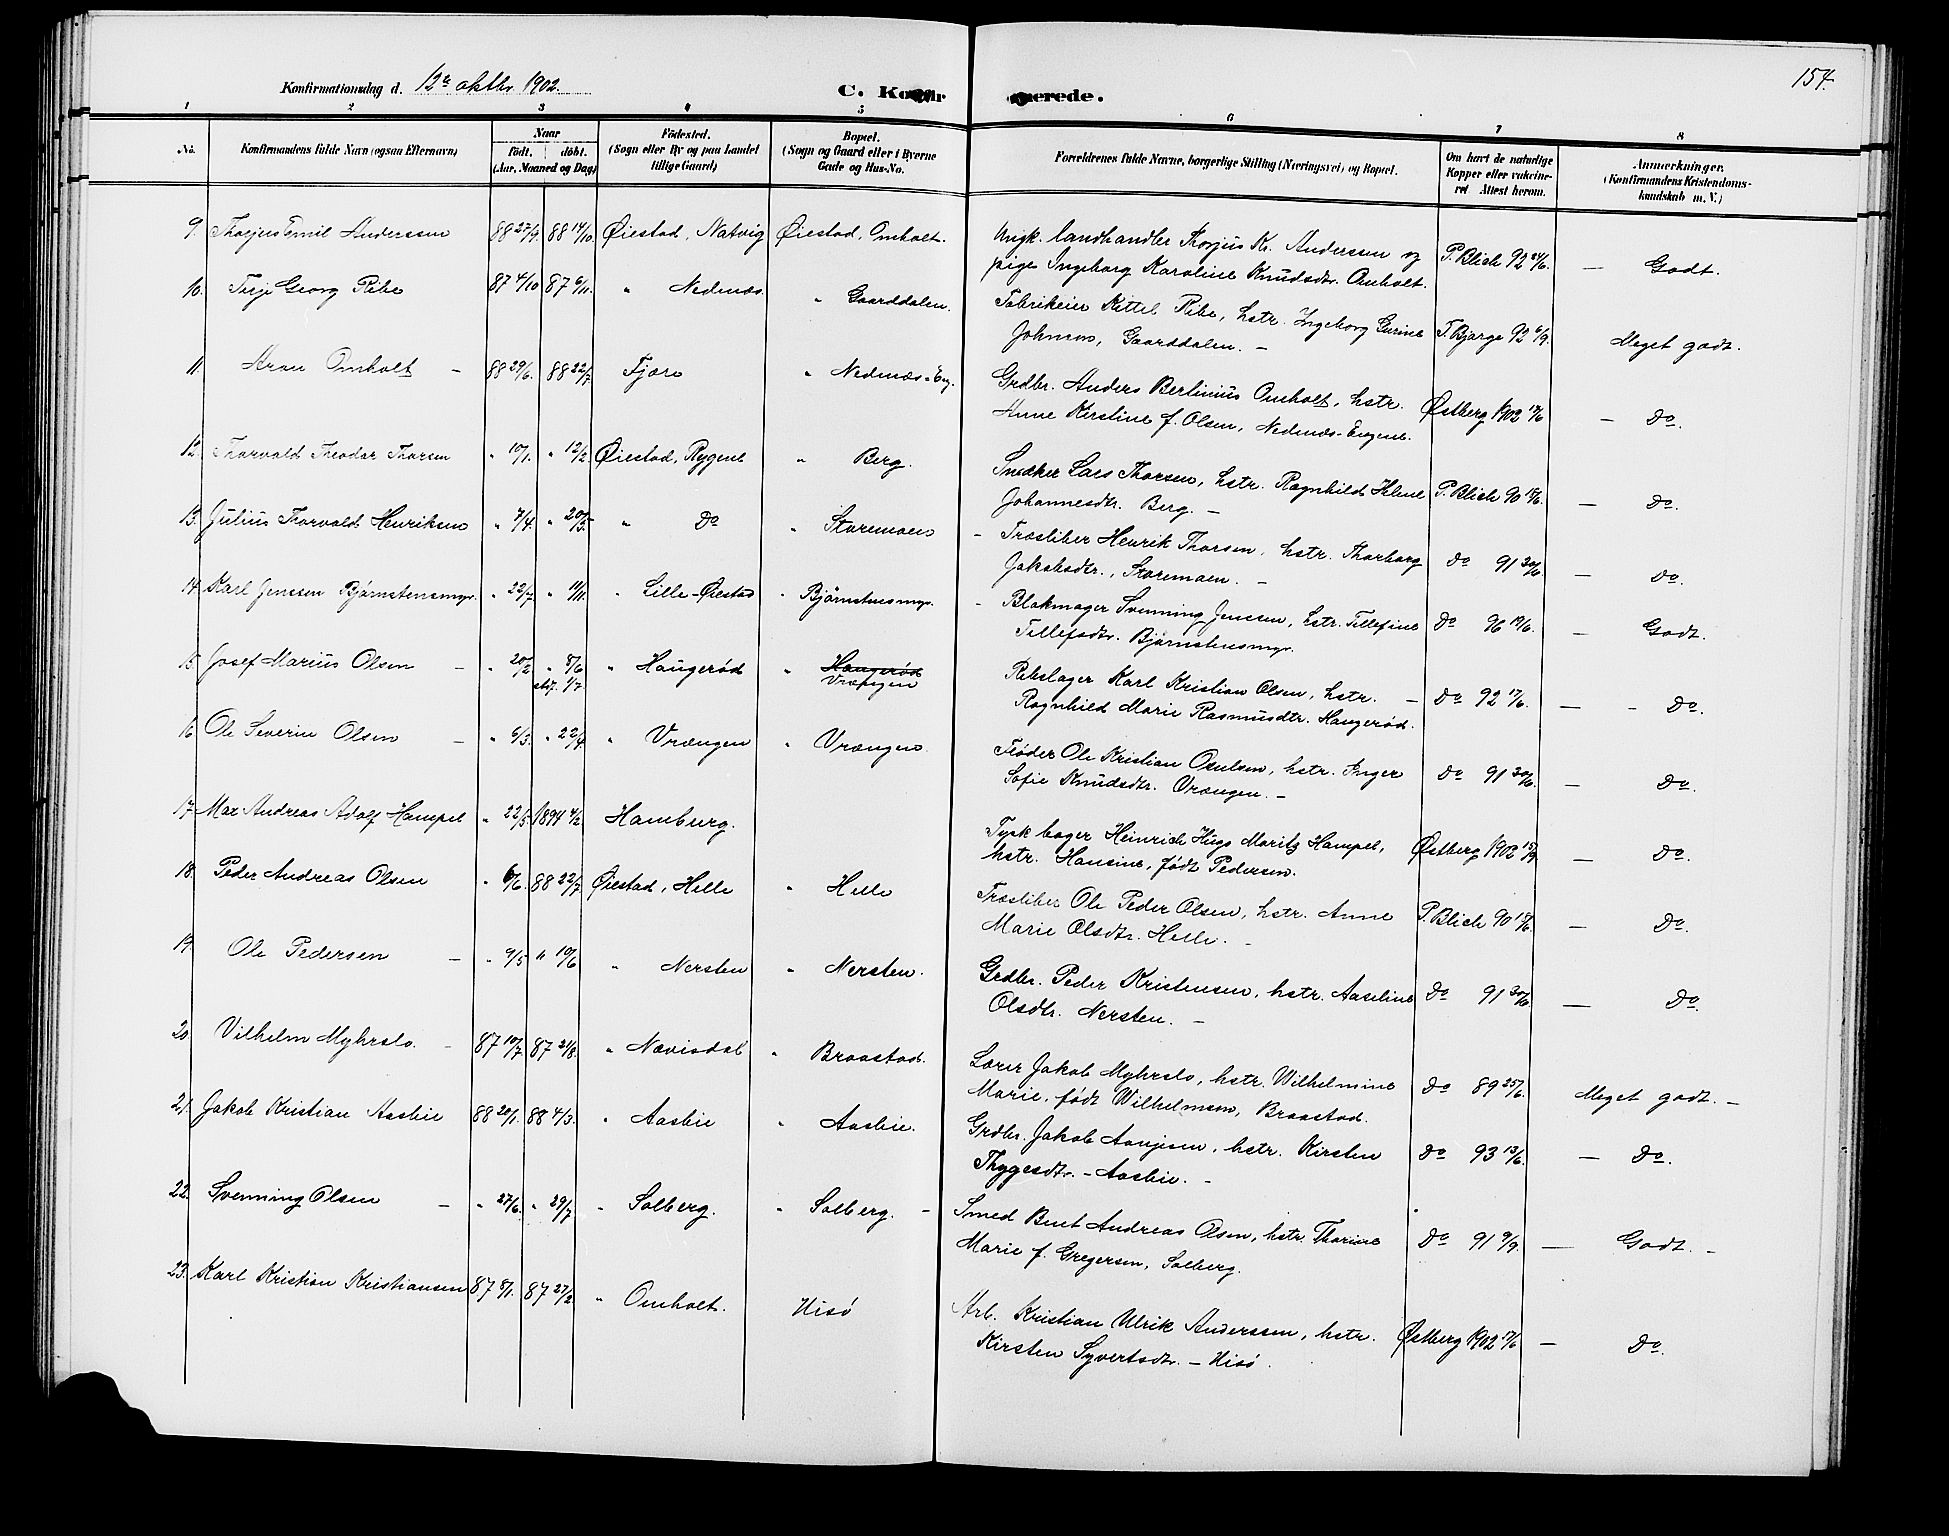 154.
Konfirmationsdag d. 12te oktbr. 1902.
C. Konfir erede.
1 2 3 4 5 6 7 8
No. Konfirmandens fulde Navn (ogsaa Efternavn) Naar født. døbt. (Aar, Maaned og Dag) Fødested. (Sogn eller By og paa Landet tillige Gaard) Bopæl. (Sogn og Gaard eller i Byerne Gade og Hus-No. Forældrenes fulde Navne, borgerlige Stilling (Næringsvei) og Bopæl. Om havt de naturlige Kopper eller vaccineret Attest herom. Anmærkninger. (Konfirmandens Kristendomskundskab m. V.)
9. Thorjus Emil Anderssen 88 27/9. 88 14/10. Øiestad, Natvig Øiestad, Omholt. Ungk. landhandler Thorjus Kr. Anderssen og P. Blich 92 24/6. — Godt.
pige Ingeborg Karoline Knudsdtr. Omholt.
10. Terje Georg Ribe 87 4/10 87 6/11. " Nedenæs. " Gaarddalen. Fabrikeier Kittel Ribe, hstr. Ingeborg Gurine T. Bjorge 92 6/9. Meget godt.
Johnsen, Gaarddalen. —
11. Arne Omholt — 88 29/6. 88 22/7 Fjære " Nedenæs-Eng. Grdbr. Anders Bertinius Omholt, hstr. Østberg 1902 17/6 — Do.
Anne Kirstine f. Olsen, Nedenæs-Engene.
12. Thorvald Theodor Thorsen " 10/1. " 12/2 Øiestad, Rygene " Berg. Snedker Lars Thorsen, hstr. Ragnhild Helene P. Blich 90 15/6. — Do.
Johannesdtr. Berg. —
13. Julius Thorvald Henriksen " 7/4. " 20/5. " Do " Storemoen — Træsliber Henrik Thorsen, hstr. Thorborg Do 91 30/6. — Do.
Jakobsdtr., Storemoen. —
14. Karl Jenssen Bjørnstensmyr. " 22/7 " 11/11. " Lille-Øiestad " Bjørnstensmyr. — Blokmager Svenning Jenssen, hstr. Tellefine Do 96 19/6. — Godt.
Tellefsdtr. Bjørnstensmyr.
15. Josef Marius Olsen — " 20/2 " 8/6 " Haugerød " Haugerød Rebslager Karl Kristian Olsen, hstr. — Do 92 17/6. — Do.
stdf. 1/7. Vrængen Ragnhild Marie Rasmusdtr. Haugerød.
16 Ole Severin Olsen — " 6/3. " 22/4 " Vrængen " Vrængen. Fløder Ole Kristian Osulsen, hstr. Inger Do 91 30/6. — Do.
Sofie Knudsdtr. Vrængen. —
17. Max Andreas Adolf Hampel " 22/5. 1894 4/2 Hamburg. Tysk bager Heinrich Hugo Moritz Hampel, Østberg 1902 15/9 — Do.
hstr. Hansine, født Pedersen.
18. Peder Andreas Olsen " 6/6. 88 22/7 Øiestad, Helle " Helle Træsliber Ole Peder Olsen, hstr. Anne P. Blich 90 15/6. — Do.
Marie Olsdtr. Helle. —
19. Ole Pedersen — " 9/5 " 10/6 " Nersten " Nersten. Grdbr. Peder Kristensen, hstr. Aaseline Do 91 30/6. — Do.
Olsdtr. Nersten. —
20. Vilhelm Myhrslo. — 87 10/7. 87 21/8. " Nævisdal " Braastad. Lærer Jakob Myhrslo, hstr. Wilhelmine Do 89 25/6. Meget godt. —
Marie, født Wilhelmsen, Braastad.
21. Jakob Kristian Aasbie 88 20/1. 88 4/3. " Aasbie " Aasbie. Grdbr. Jakob Aanjesen, hstr. Kirsten Do 93 13/6. — Do.
Thygesdtr. — Aasbie. —
22. Svenning Olsen — " 27/6. " 29/7 " Solberg. " Solberg. — Smed Bent Andreas Olsen, hstr. Thorine Do 91 9/9. — Godt. —
Marie f. Gregersen, Solberg.
23. Karl Kristian Kristiansen 87 8/1. 87 27/2 " Omholt. Hisø Arb. Kristian Ulrik Anderssen, hstr. Østberg 1902 17/6 — Do.
Kirsten Syvertsdtr. — Hisø.